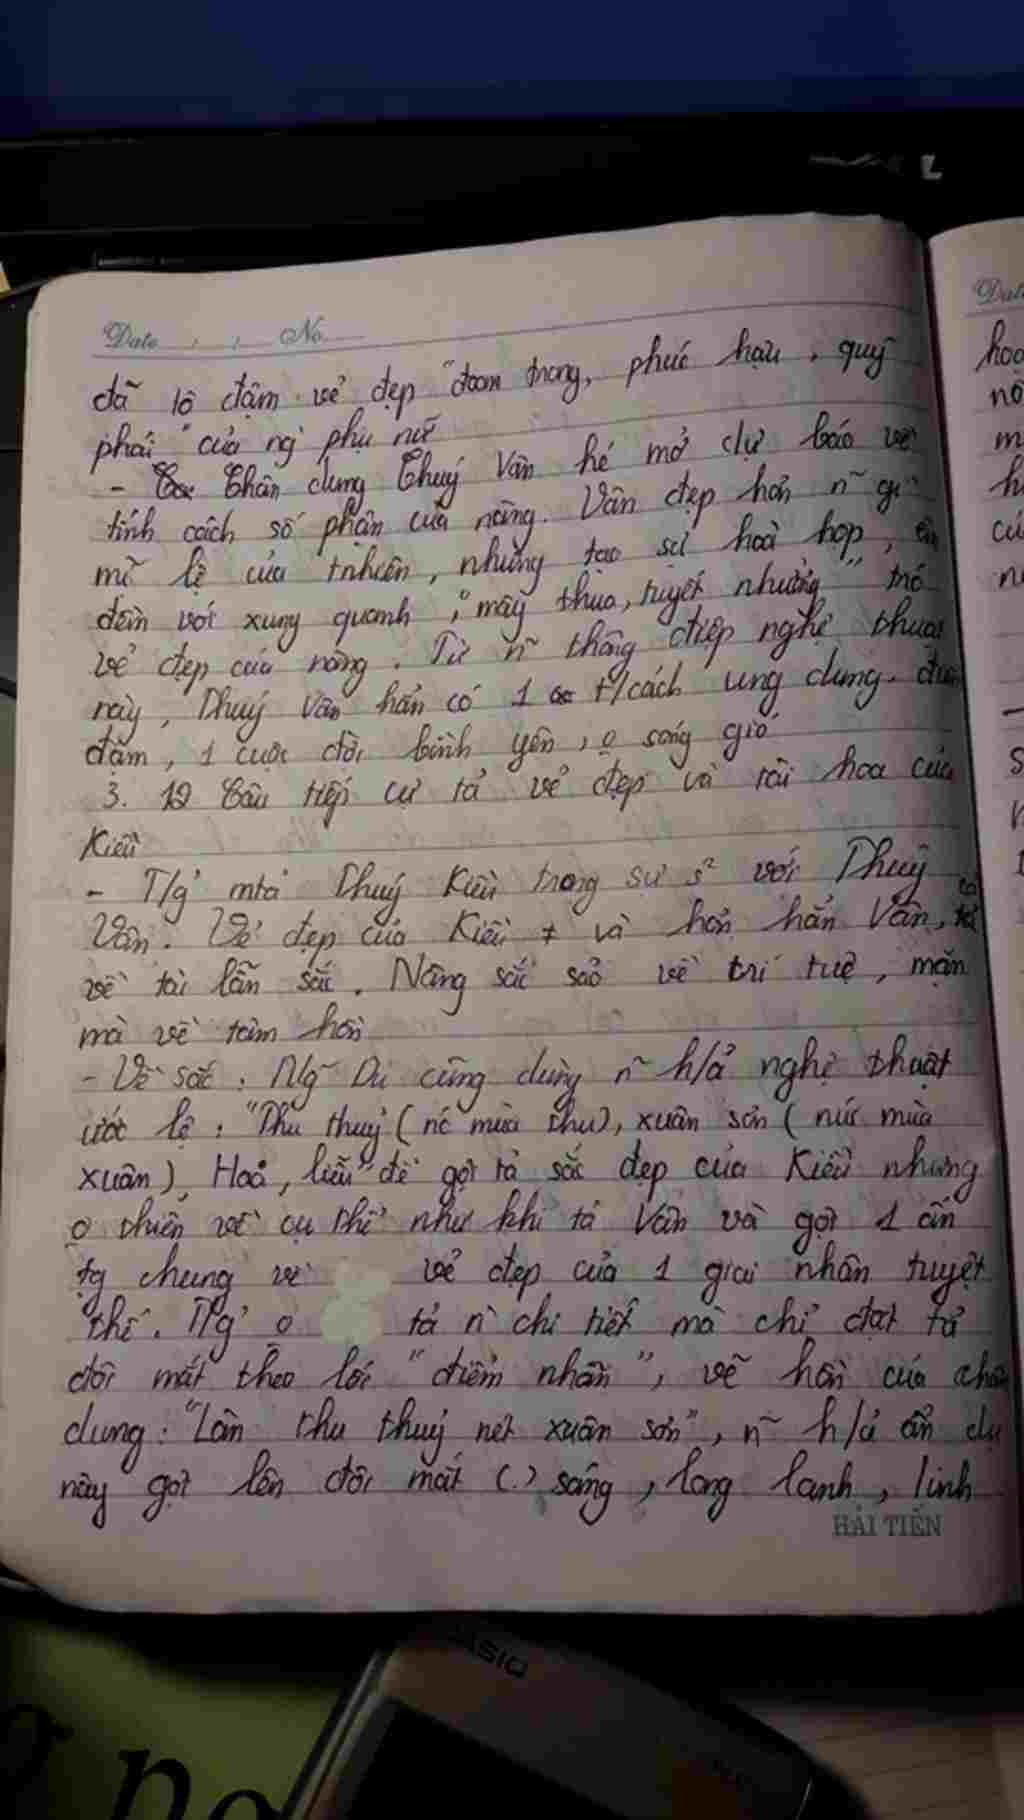 Date : : No.
đã tô đậm vẻ đẹp "đoan trang, phúc hậu, quý
phái" của ng` phụ nữ
- Chân dung Thuý Vân hé mở dự báo về
tính cách số phận của nàng. Vân đẹp hơn n~ gì
mĩ lệ của tnhiên, nhưng tạo sự hoà hợp, êm
đềm với xung quanh, "mây thua, tuyết nhường"
vẻ đẹp của nàng. Từ n~ thông điệp nghệ thuật
này, Thuý Vân hẳn có 1 t/cách ung dung.
đằm, 1 cuộc đời bình yên, o sóng gió
3. 12 câu tiếp cự tả vẻ đẹp và tài hoa của
Kiều
- T/g' mtả Thuý Kiều trong sự s² với Thuý
Vân. Vẻ đẹp của Kiều ≠ và hơn hẳn Vân, cả
về tài lẫn sắc. Nàng sắc sảo về trí tuệ, mặn
mà về tâm hồn
- Về sắc: Ng~ Du cũng dùng n~ h/ả nghệ thuật
ước lệ: "Thu thuỷ (nc mùa thu), xuân sơn (núi mùa
xuân), Hoa, liễu" để gợi tả sắc đẹp của Kiều nhưng
o thiên về cụ thể như khi tả Vân và gợi 1 ấn
tg chung về vẻ đẹp của 1 giai nhân tuyệt
thế. T/g' o tả n` chi tiết mà chỉ đặt tả
đôi mắt theo lối "điểm nhãn", vẽ hồn của chân
dung: "Làn thu thuỷ nét xuân sơn", n~ h/ả ẩn dụ
này gợi lên đôi mắt (.) sáng, long lanh, linh
HẢI TIẾN